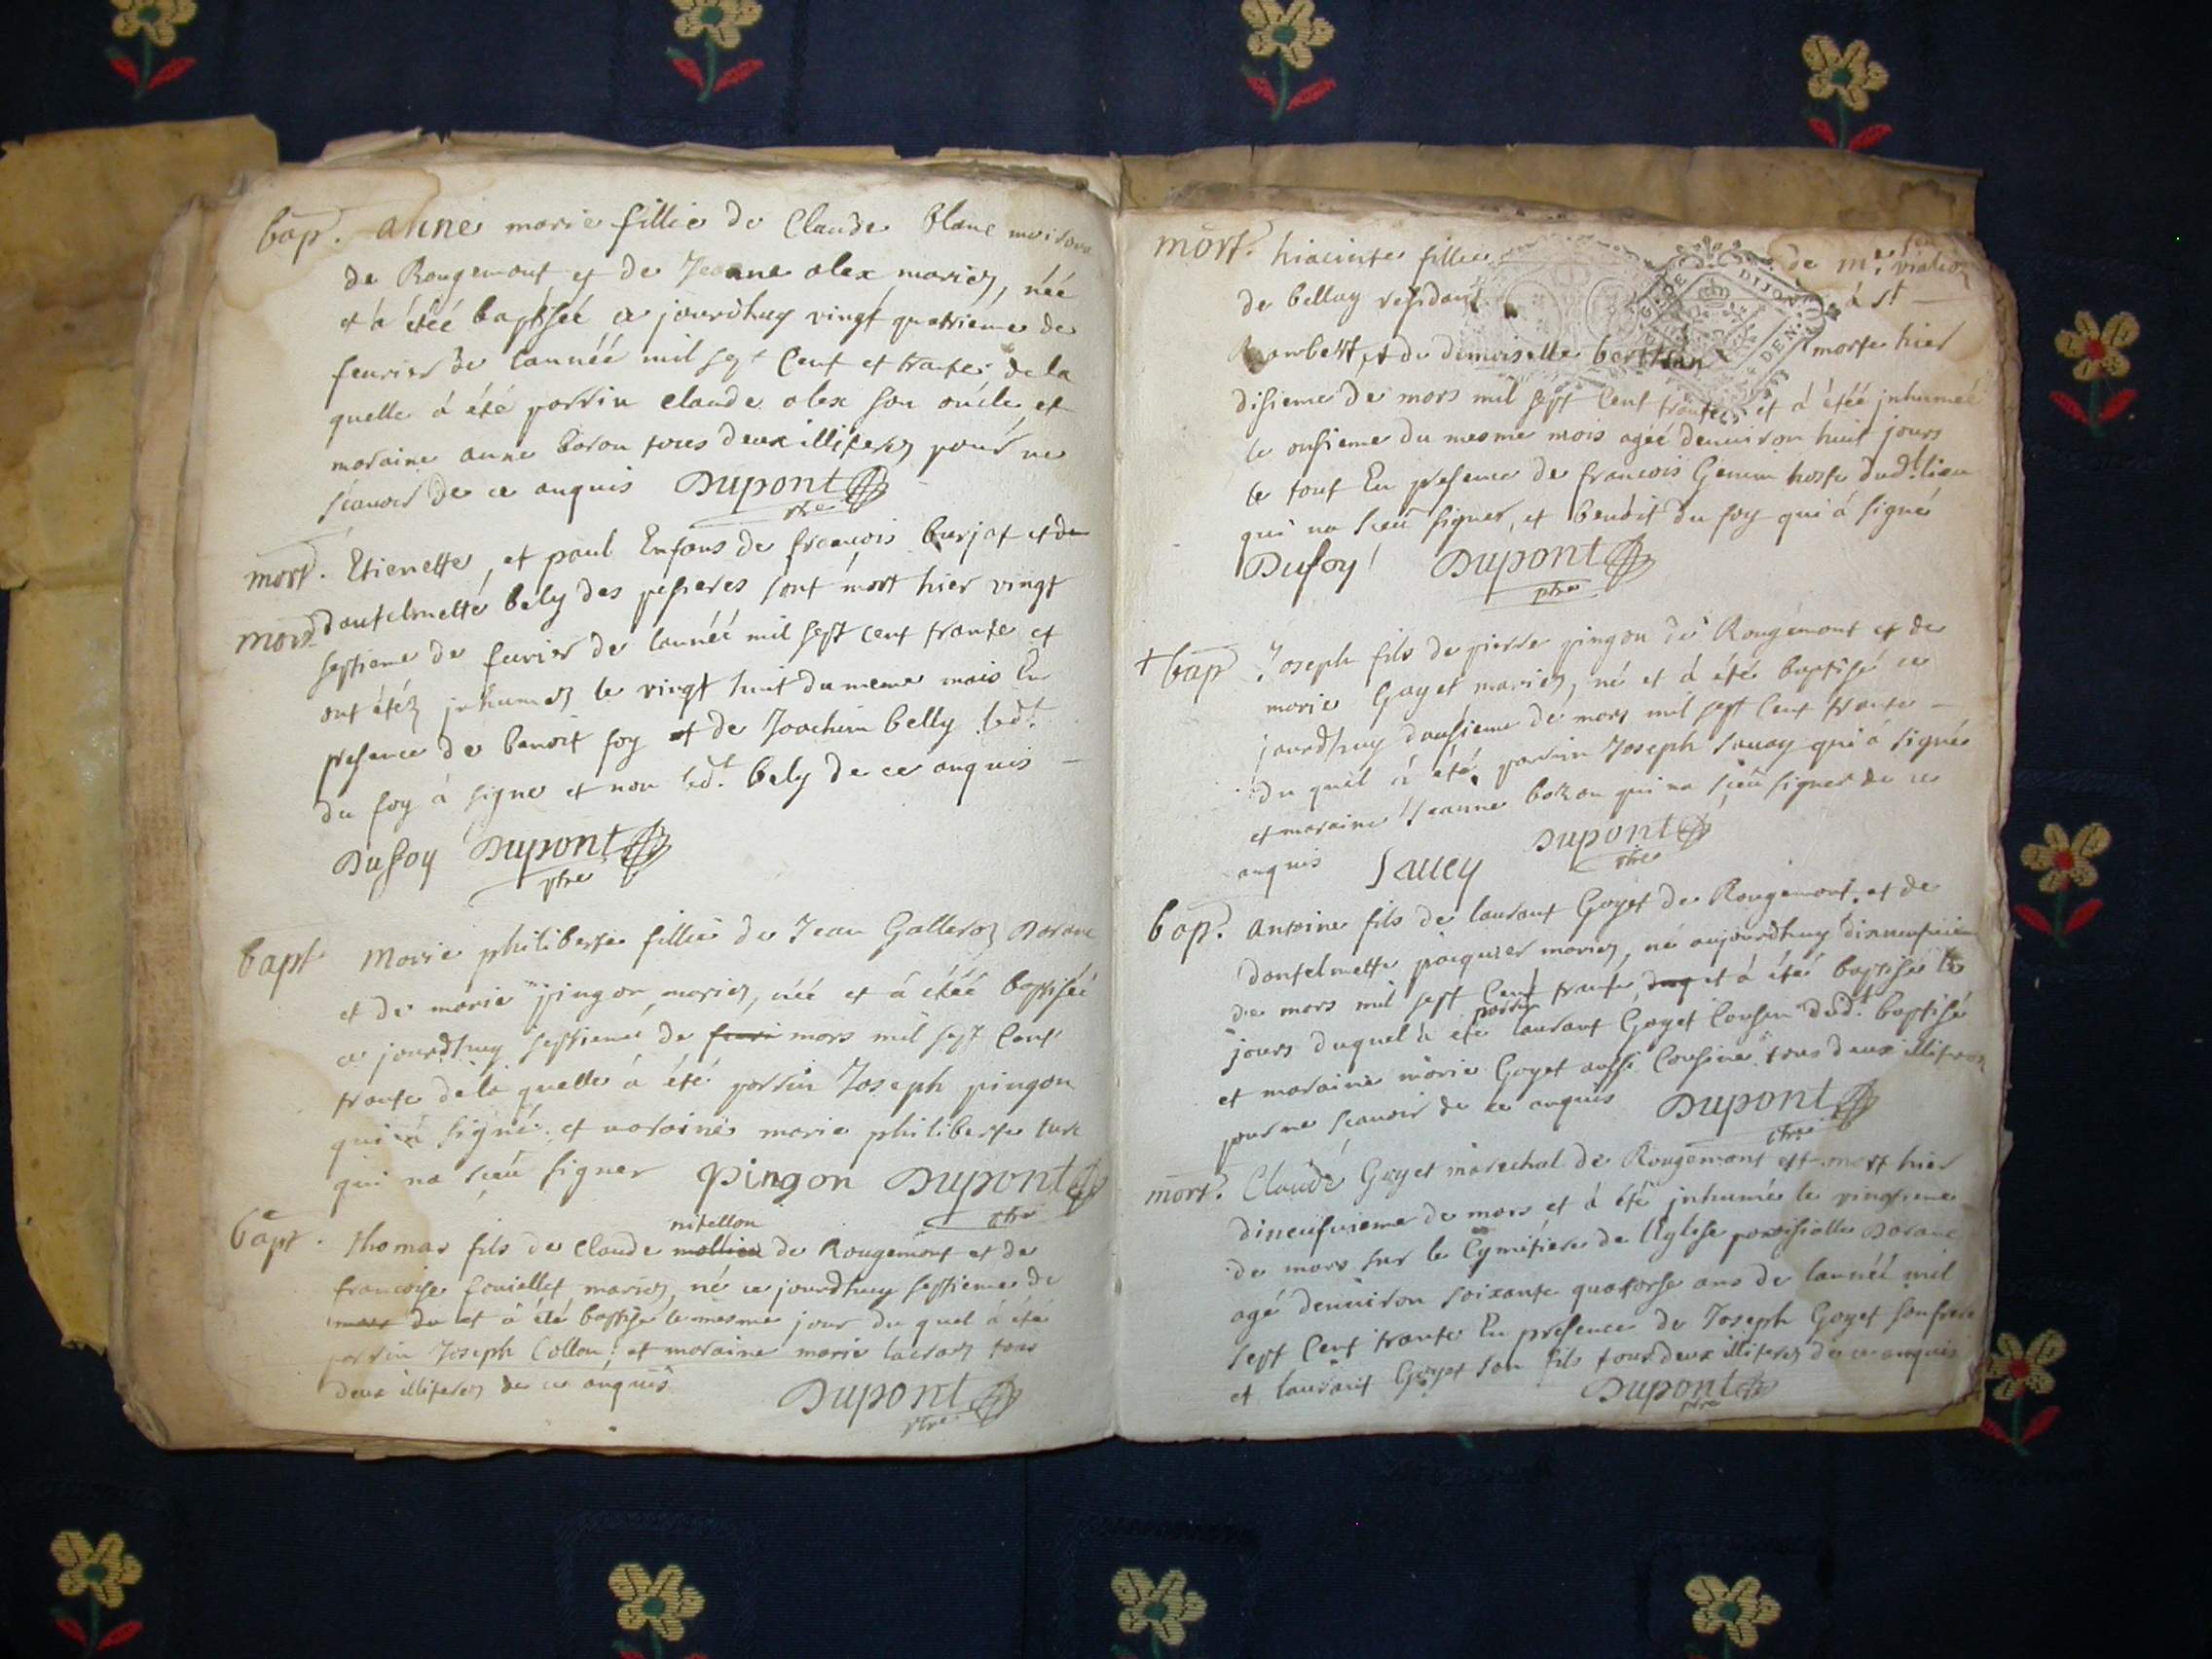 bap. anne marie fillie de Claude blanc
de Rougemont et de Jeanne alex mariez, néé
et a étéé baptiséé ce jourdhuy vingt quatrieme de
feurier de lannéé mil sept Cent et trante de la
quelle à été parrin claude alex son oncle et
maraine anne boron tous deux illiterez pour ne
scauoir de ce anquis Dupont
ptre
mort. Etienette, et paul Enfans de francois burjat et de
mort dantelmette bely des pesieres sont mort hier vingt
septieme de feurier de lannéé mil sept cent trante et
ont étéz inhumez le vingt huit du meme mois En
presence de benoit foy et de Joachim belly led.t
du foy à signe et non led.t bely de ce anquis
Dufoy Dupont
ptre
bapt Marie philiberte fillie de Jean Galleroz Daranc
et de marie pingon mariez, néé et á étéé baptiséé
ce jourdhuy septieme de feuri mars mil sept Cent
trante de la quelle à été parrin Joseph pingon
qui à signé et maraine marie philiberte
qui na sceu signer pingon Dupont
ptre
nitellon
bapt. thomas fils de Claude de Rougemont et de
francoise mariez, né ce jourdhuy septieme de
mars du et à été baptisé le mesme jour du quel à été
parrin Joseph Collon et maraine marie tous
deux illiterez de ce anquis
Dupont
ptre
mort. hiacinte fillie de m.e
de bellay residant à st
Rambert, et de demoiselle morte hier
disieme de mars mil sept Cent trante et à étéé inhuméé
le onsieme du mesme mois agéé denuiron huit jours
le tout En presence de francois Genin hoste dud.t lieu
qui na sceu signer, et benoit du foy qui à signé
Dufoy Dupont
ptre
+ bap Joseph fils de pierre pingon de Rougemont et de
marie Goyet mariez, né et à été baptisé ce
jourdhuy dousieme de mars mil sept Cent trante
du quel à été parrin Joseph sauay qui à signé
et maraine Jeanne boron qui na sceu signer de ce
anquis Sauey Dupont
ptre
bap. Antoine fils de laurant Goyet de Rougemont et de
dantelmette mariez, né aujourdhuy dixneufuieme
de mars mil sept Cent trante, et à été baptisé le
parrin
jours duquel à été laurant Goyet Cousin dud.t baptisé
et maraine marie Goyet aussi Cousine tous deux illiterez
pour ne scauoir de ce anquis Dupont
ptre
mort. Claude Goyet marechal de Rougemont est mort hier
dineufuieme de mars et à été inhumé le vingtieme
de mars sur le Cymetiere de l'Eglise paroisialle Daranc
agé denuiron soixante quatorse ans de lannéé mil
sept Cent trante En presence de Joseph Goyet son frere
et laurant Goyet son fils tous deux illiterez de ce anquis
Dupont
ptre